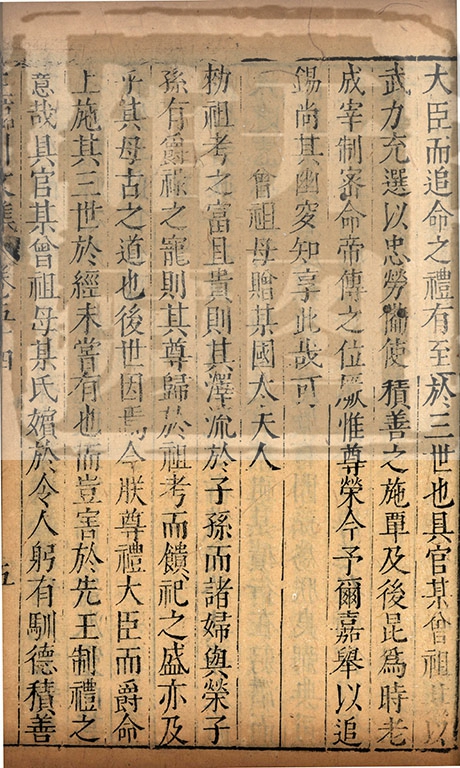 大臣而追命之禮有至於三世也具官某曾祖某以
武力充選以忠勞備使積善之施單及後昆為時老
成宰制密命帝傅之位厥惟尊榮今予爾嘉舉以追
錫尚其幽窀知享此哉可
曾祖母贈某國太夫人
勑祖考之富且貴則其澤流於子孫而諸婦與榮子
孫有爵祿之寵則其尊歸於祖考而饋祀之盛亦及
乎其母古之道也後世因焉今朕尊禮大臣而爵命
上施其三世於經未嘗有也而豈害於先王制禮之
意哉具官某曾祖母某氏嬪於令人躬有馴德積善